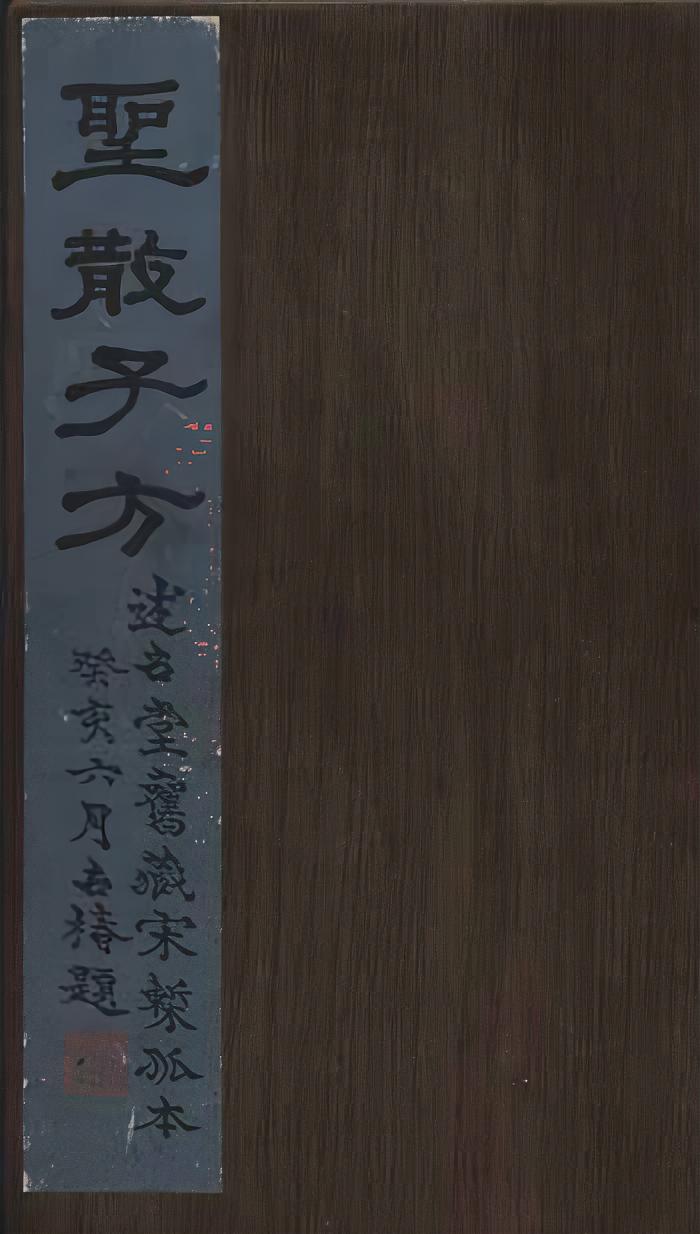 聖散子方
述古堂舊藏宋槧孤本
癸亥六月古椿題